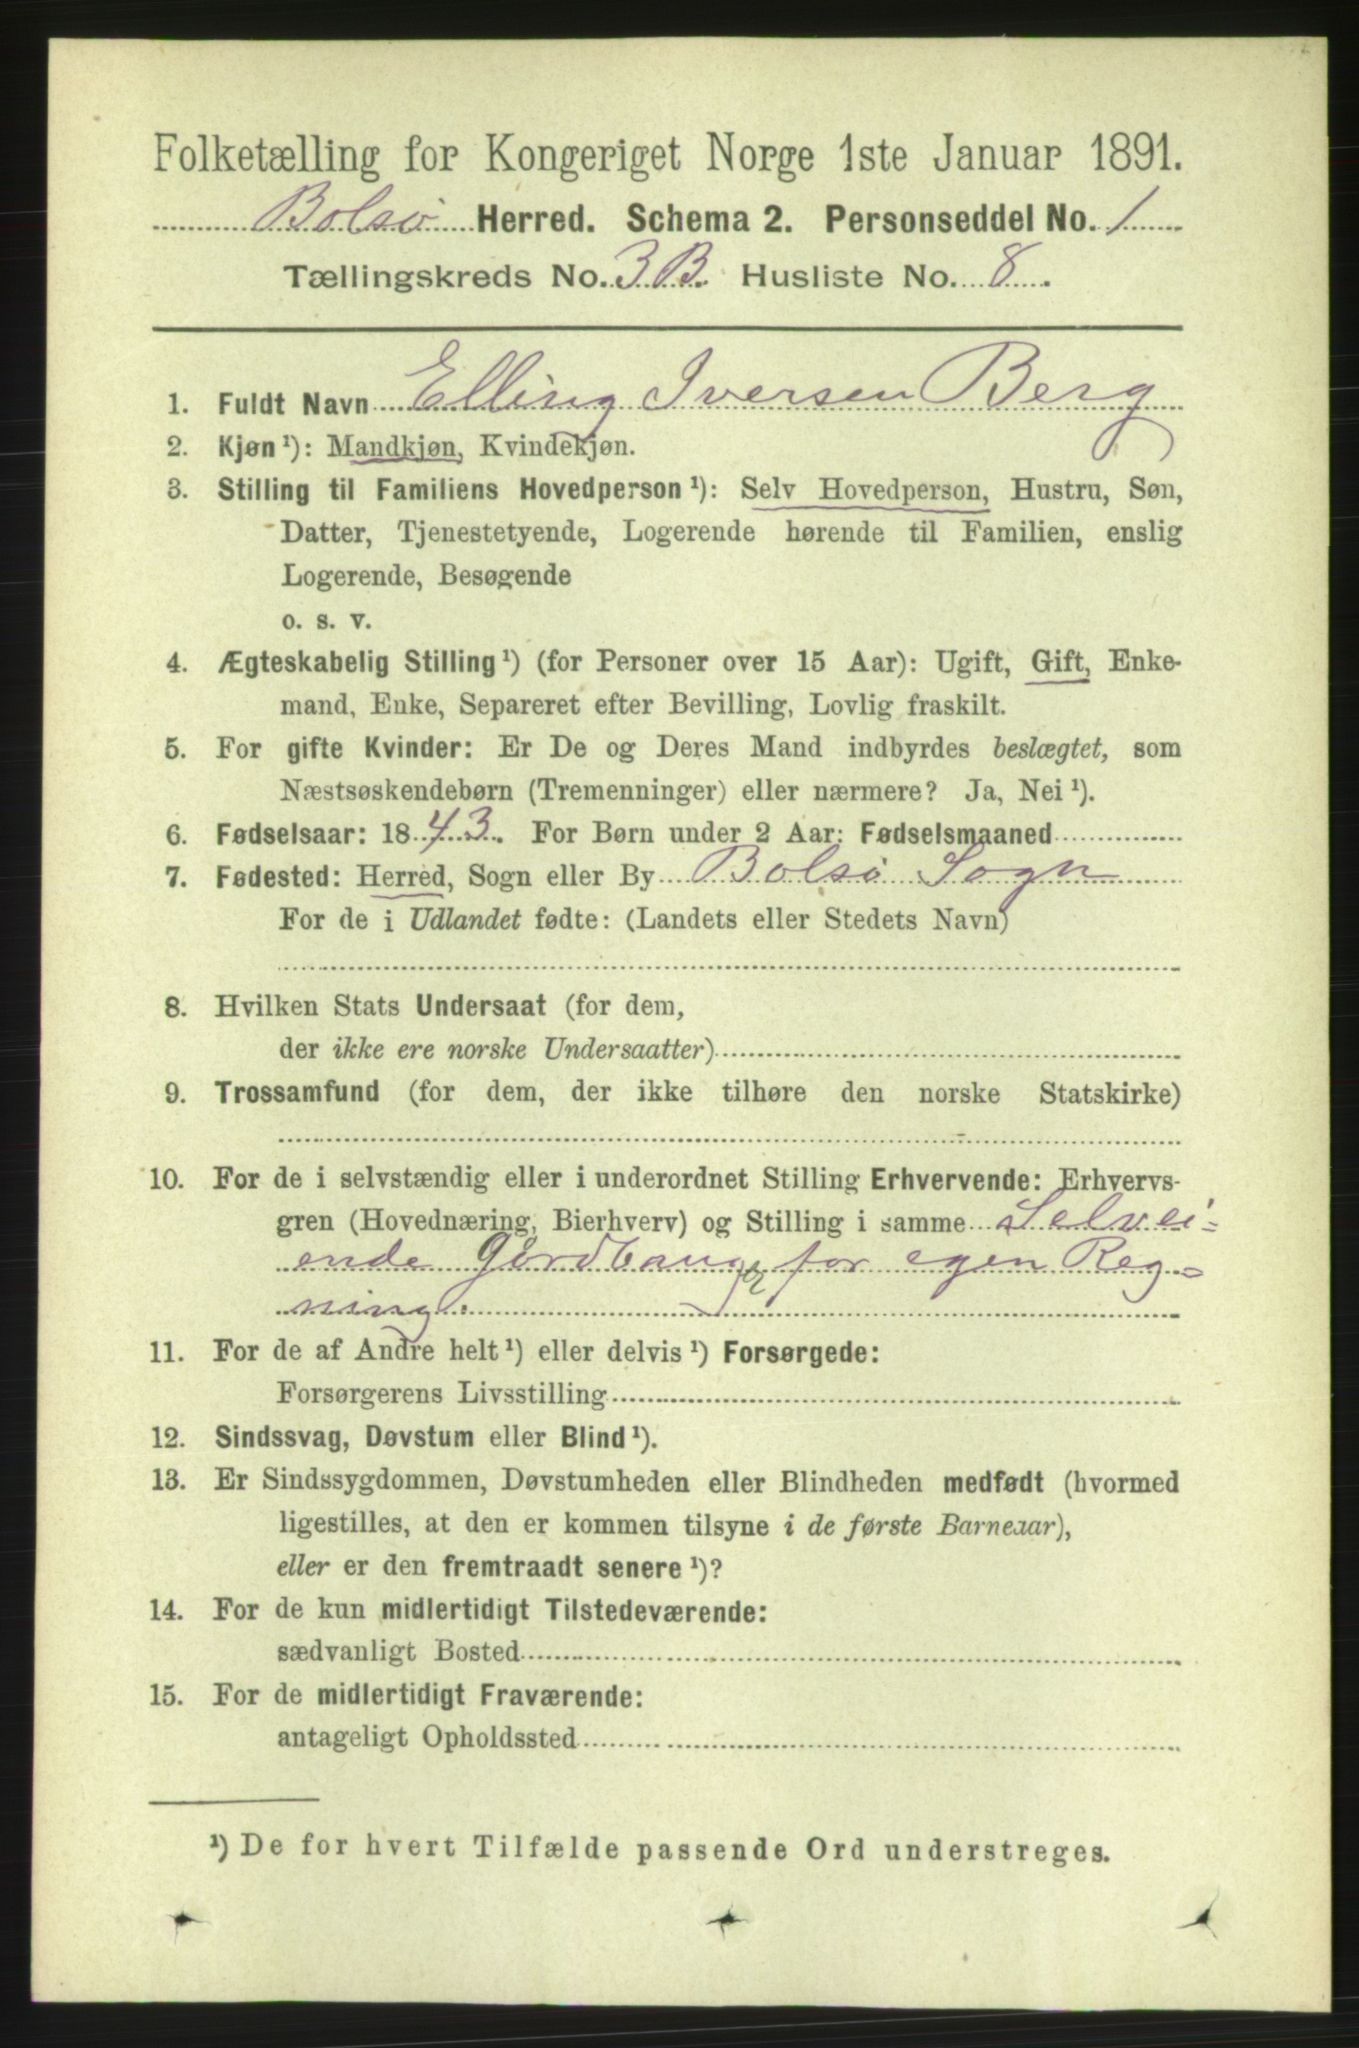 Folketælling for Kongeriget Norge 1ste Januar 1891.
Bolsø Herred. Schema 2. Personseddel No. 1
Tællingskreds No. 3 B. Husliste No. 8.
1. Fuldt Navn Elling Iversen Berg
2. Kjøn¹): Mandkjøn, Kvindekjøn.
3. Stilling til Familiens Hovedperson¹): Selv Hovedperson, Hustru, Søn,
Datter, Tjenestetyende, Logerende hørende til Familien, enslig
Logerende, Besøgende
o. s. v.
4. Ægteskabelig Stilling¹) (for Personer over 15 Aar): Ugift, Gift, Enke-
mand, Enke, Separeret efter Bevilling, Lovlig fraskilt.
5. For gifte Kvinder: Er De og Deres Mand indbyrdes beslægtet, som
Næstsøskendebørn (Tremenninger) eller nærmere? Ja, Nei¹).
6. Fødselsaar: 1843. For Børn under 2 Aar: Fødselsmaaned
7. Fødested: Herred, Sogn eller By Bolsø Sogn
For de i Udlandet fødte: (Landets eller Stedets Navn)
8. Hvilken Stats Undersaat (for dem,
der ikke ere norske Undersaatter)
9. Trossamfund (for dem, der ikke tilhøre den norske Statskirke)
10. For de i selvstændig eller i underordnet Stilling Erhvervende: Erhvervs-
gren (Hovednæring, Bierhverv) og Stilling i samme Selvei=
ende for egen Reg=
ning.
11. For de af Andre helt¹) eller delvis¹) Forsørgede:
Forsørgerens Livsstilling
12. Sindssvag, Døvstum eller Blind¹).
13. Er Sindssygdommen, Døvstumheden eller Blindheden medfødt (hvormed
ligestilles, at den er kommen tilsyne i de første Barneaar),
eller er den fremtraadt senere¹)?
14. For de kun midlertidigt Tilstedeværende:
sædvanligt Bosted
15. For de midlertidigt Fraværende:
antageligt Opholdssted
¹) De for hvert Tilfælde passende Ord understreges.